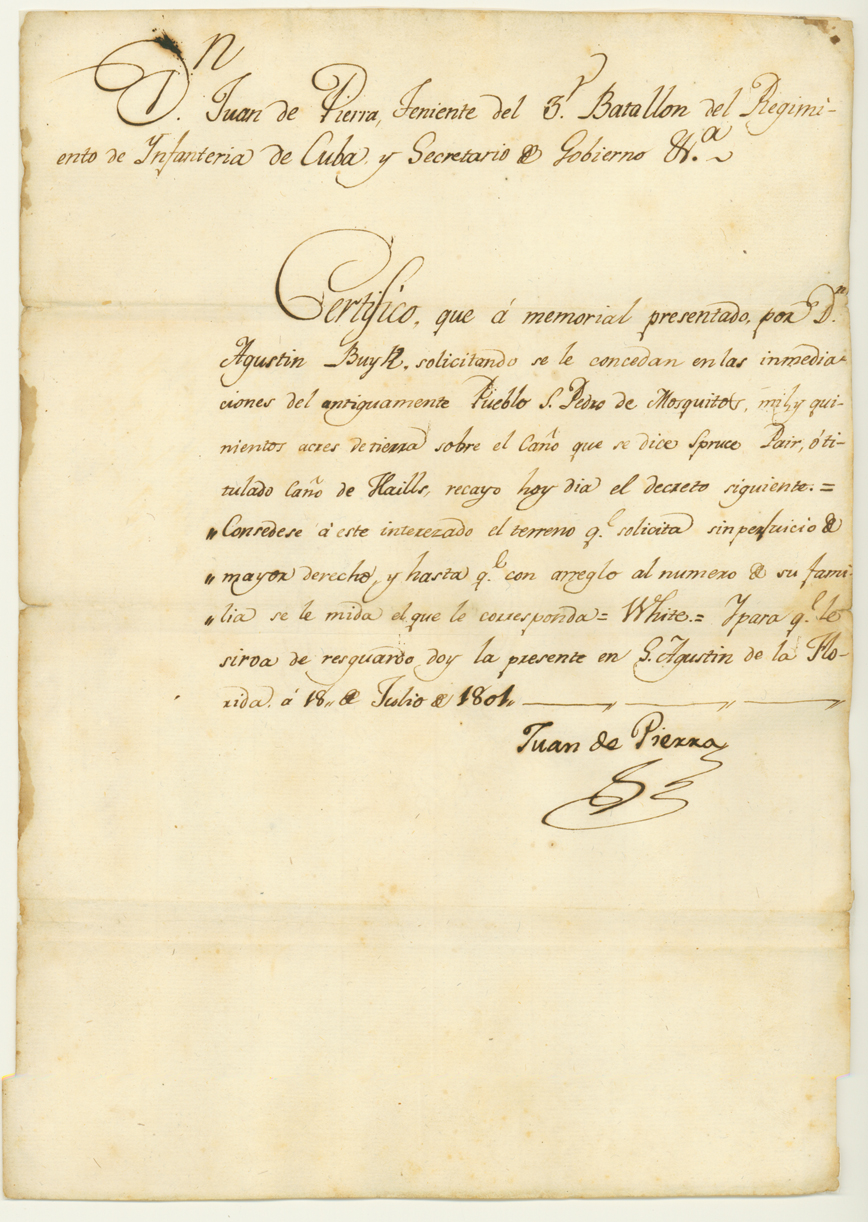 Dn. Juan de Pierra, Teniente del 3r. Batallon del Regimi-
ento de Infanteria de Cuba, y Secretario de Gobierno &.a
Certifico, que á memorial presentado, por Dn.
Agustin Buyk, solicitando se le concedan en las inmedia-
ciones del antiguamente Pueblo S. Pedro de Mosquitos, mil, y qui-
nientos acres de tierra sobre el Caño que se dice Spruce Pair, ó ti-
tulado Caño de Haills, recayo hoy dia el decreto siguiente. =
" Consedese á este interezado el terreno q.e solicita sin perjuicio de
" mayor derecho, y hasta q.e con arreglo al numero de su fami-
" lia se le mida el que le corresponda = White. = Y para q.e le
sirva de resguardo doy la presente en S. Agustin de la Flo-
rida, á 18,, de Julio de 1801,,
Juan de Pierra